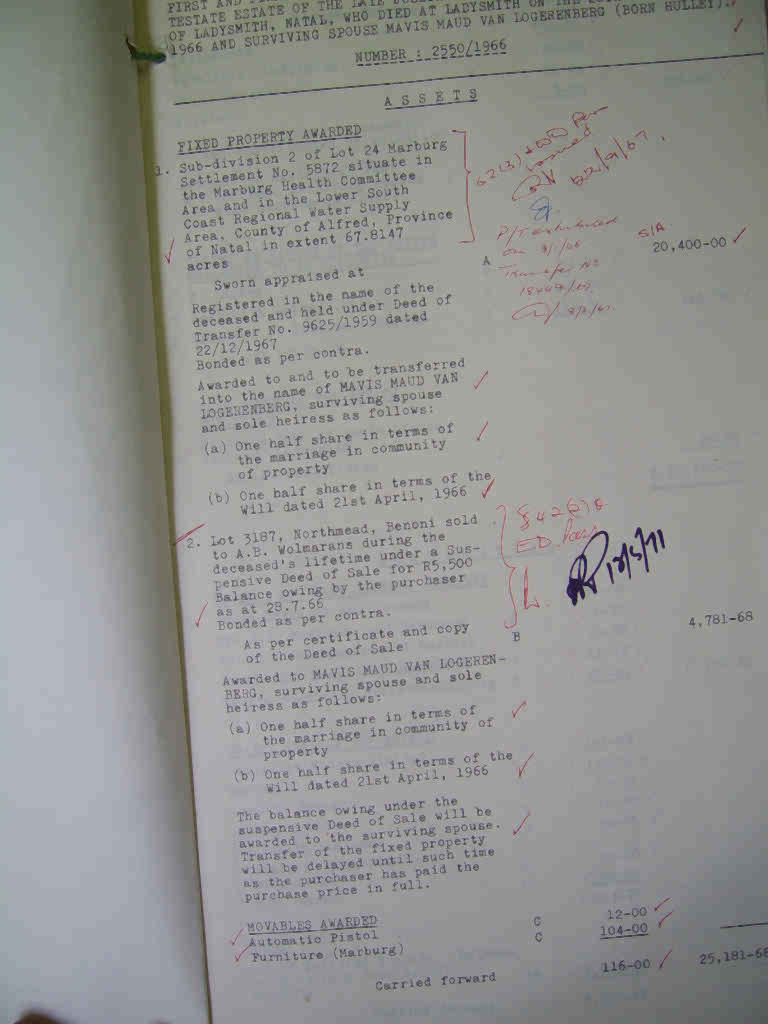 FIRST AND
TESTATE ESTATE OF THE LATE
OF LADYSMITH, NATAL, WHO DIED AT LADYSMITH ON THE
1966 AND SURVIVING SPOUSE MAVIS MAUD VAN LOGERENBERG (BORN HULLEY).
NUMBER : 2550/1966
ASSETS
FIXED PROPERTY AWARDED
1. Sub-division 2 of Lot 24 Marburg
Settlement No. 5872 situate in
the Marburg Health Committee
Area and in the Lower South
Coast Regional Water Supply
Area, County of Alfred, Province
of Natal in extent 67.8147
acres
Sworn appraised at A S/A 20,400-00
Registered in the name of the
deceased and held under Deed of
Transfer No. 9625/1959 dated
22/12/1967
Bonded as per contra.
Awarded to and to be transferred
into the name of MAVIS MAUD VAN
LOGERENBERG, surviving spouse
and sole heiress as follows:
(a) One half share in terms of
the marriage in community
of property
(b) One half share in terms of the
Will dated 21st April, 1966
2. Lot 3187, Northmead, Benoni sold
to A.B. Wolmarans during the
deceased's lifetime under a Sus-
pensive Deed of Sale for R5,500
Balance owing by the purchaser
as at 28.7.66
Bonded as per contra.
As per certificate and copy
of the Deed of Sale B 4,781-68
Awarded to MAVIS MAUD VAN LOGEREN-
BERG, surviving spouse and sole
heiress as follows:
(a) One half share in terms of
the marriage in community of
property
(b) One half share in terms of the
Will dated 21st April, 1966
The balance owing under the
suspensive Deed of Sale will be
awarded to the surviving spouse.
Transfer of the fixed property
will be delayed until such time
as the purchaser has paid the
purchase price in full.
MOVABLES AWARDED
Automatic Pistol C 12-00
Furniture (Marburg) C 104-00
Carried forward 116-00 25,181-68